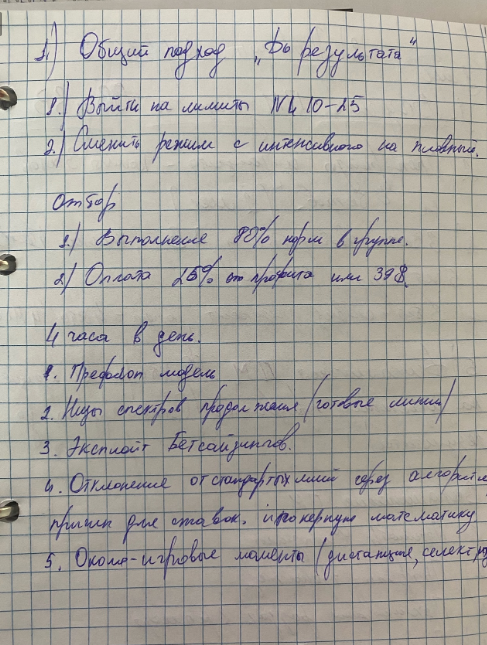 1) Общий подход „До результата“
1.) Выйти на лимиты NL 10-25
2.) Сменить режим с интенсивного на плавный.
Отбор
1.) Выполнение 80% норм в группе.
2) Оплата 25% от профита или 39$
4 часа в день.
1. Префлоп модель
2. Низы спектров продолжения (готовые линии)
3. Эксплойт Бетсайзингов.
4. Отклонение от стандартных линий через
причин для ставок. и покерную математику
5. Около-игровые моменты (дистанция,